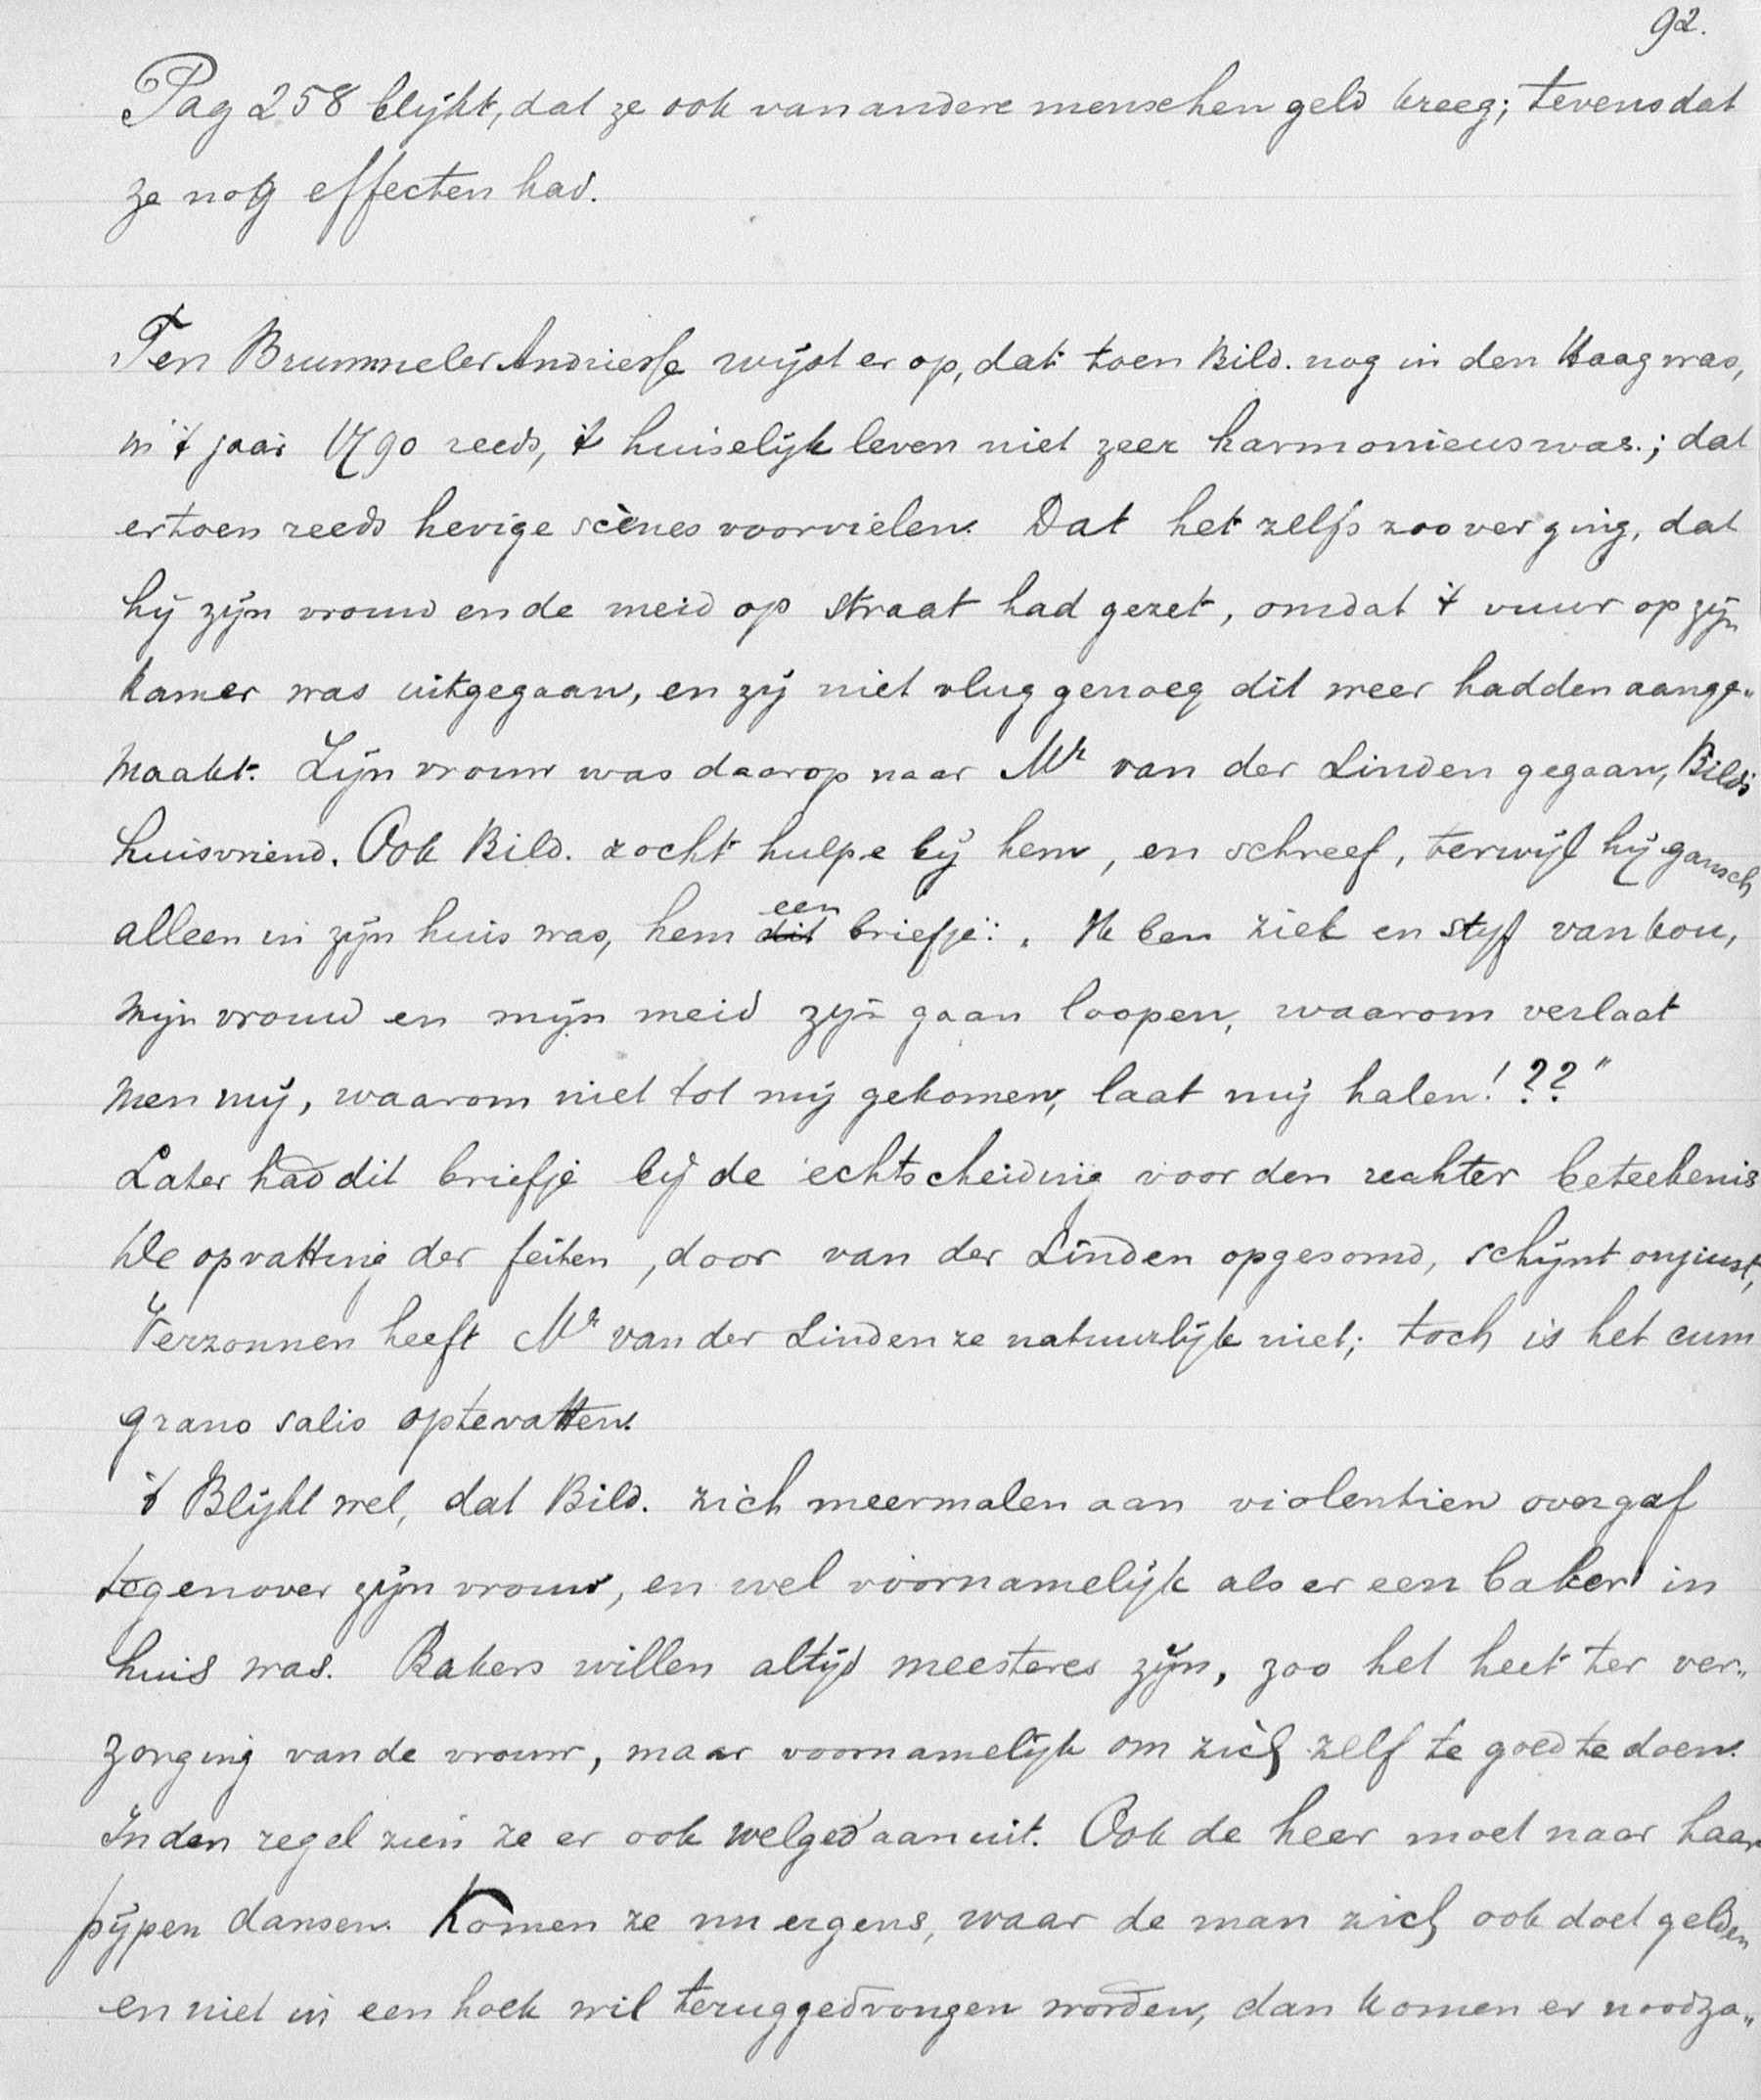 92.
Pag 258 blijkt, dat ze ook van andere menschen geld kreeg; tevens dat
ze nog effecten had.
Ten Brummeler Andriesse wijst er op, dat toen Bild. nog in den Haag was,
in 't jaar 1790 reeds, 't huiselijk leven niet zeer harmonieus was.; dat
er toen reeds hevige scènes voorvielen. Dat het zelfs zoo ver ging, dat
hij zijn vrouw en de meid op straat had gezet, omdat 't vuur op zijn
kamer was uitgegaan, en zij niet vlug genoeg dit weer hadden aange„
maakt. Zijn vrouw was daarop naar Mr van der Linden gegaan, Bild's
huisvriend. Ook Bild. zocht hulpe bij hem, en schreef, terwijl hij gansch
alleen in zijn huis was, hem ~~dit~~ een briefje: „ Ik ben ziek en styf van kou,
mijn vrouw en mijn meid zijn gaan loopen, waarom verlaat
men mij, waarom niet tot mij gekomen, laat mij halen!??"
Later had dit briefje bij de echtscheiding voor den rechter beteekenis
De opvatting der feiten, door van der Linden opgesomd, schijnt onjuist,
Verzonnen heeft Mr van der Linden ze natuurlijk niet; toch is het cum
grano salis optevatten.
't Blijkt wel, dat Bild. zich meermalen aan violentien overgaf
tegenover zijn vrouw, en wel voornamelijk als er een baker in
huis was. Bakers willen altijd meesteres zijn, zoo het heet ter ver„
zorging van de vrouw, maar voornamelijk om zich zelf te goed te doen.
In den regel zien ze er ook welgedaan uit. Ook de heer moet naar haar
pijpen dansen. Komen ze nu ergens, waar de man zich ook doet gelden
en niet in een hoek wil teruggedrongen worden, dan komen er noodza„